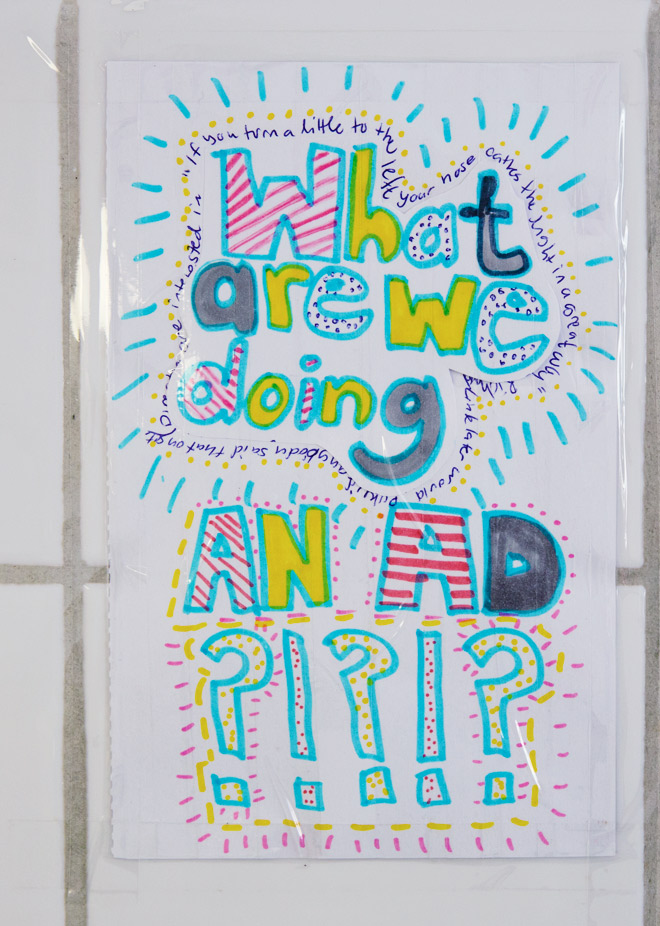 What
are we
doing
AN AD
?!?!?
"If you turn a little to the left your nose catches the light in a great way"
would
anybody said that
interested in